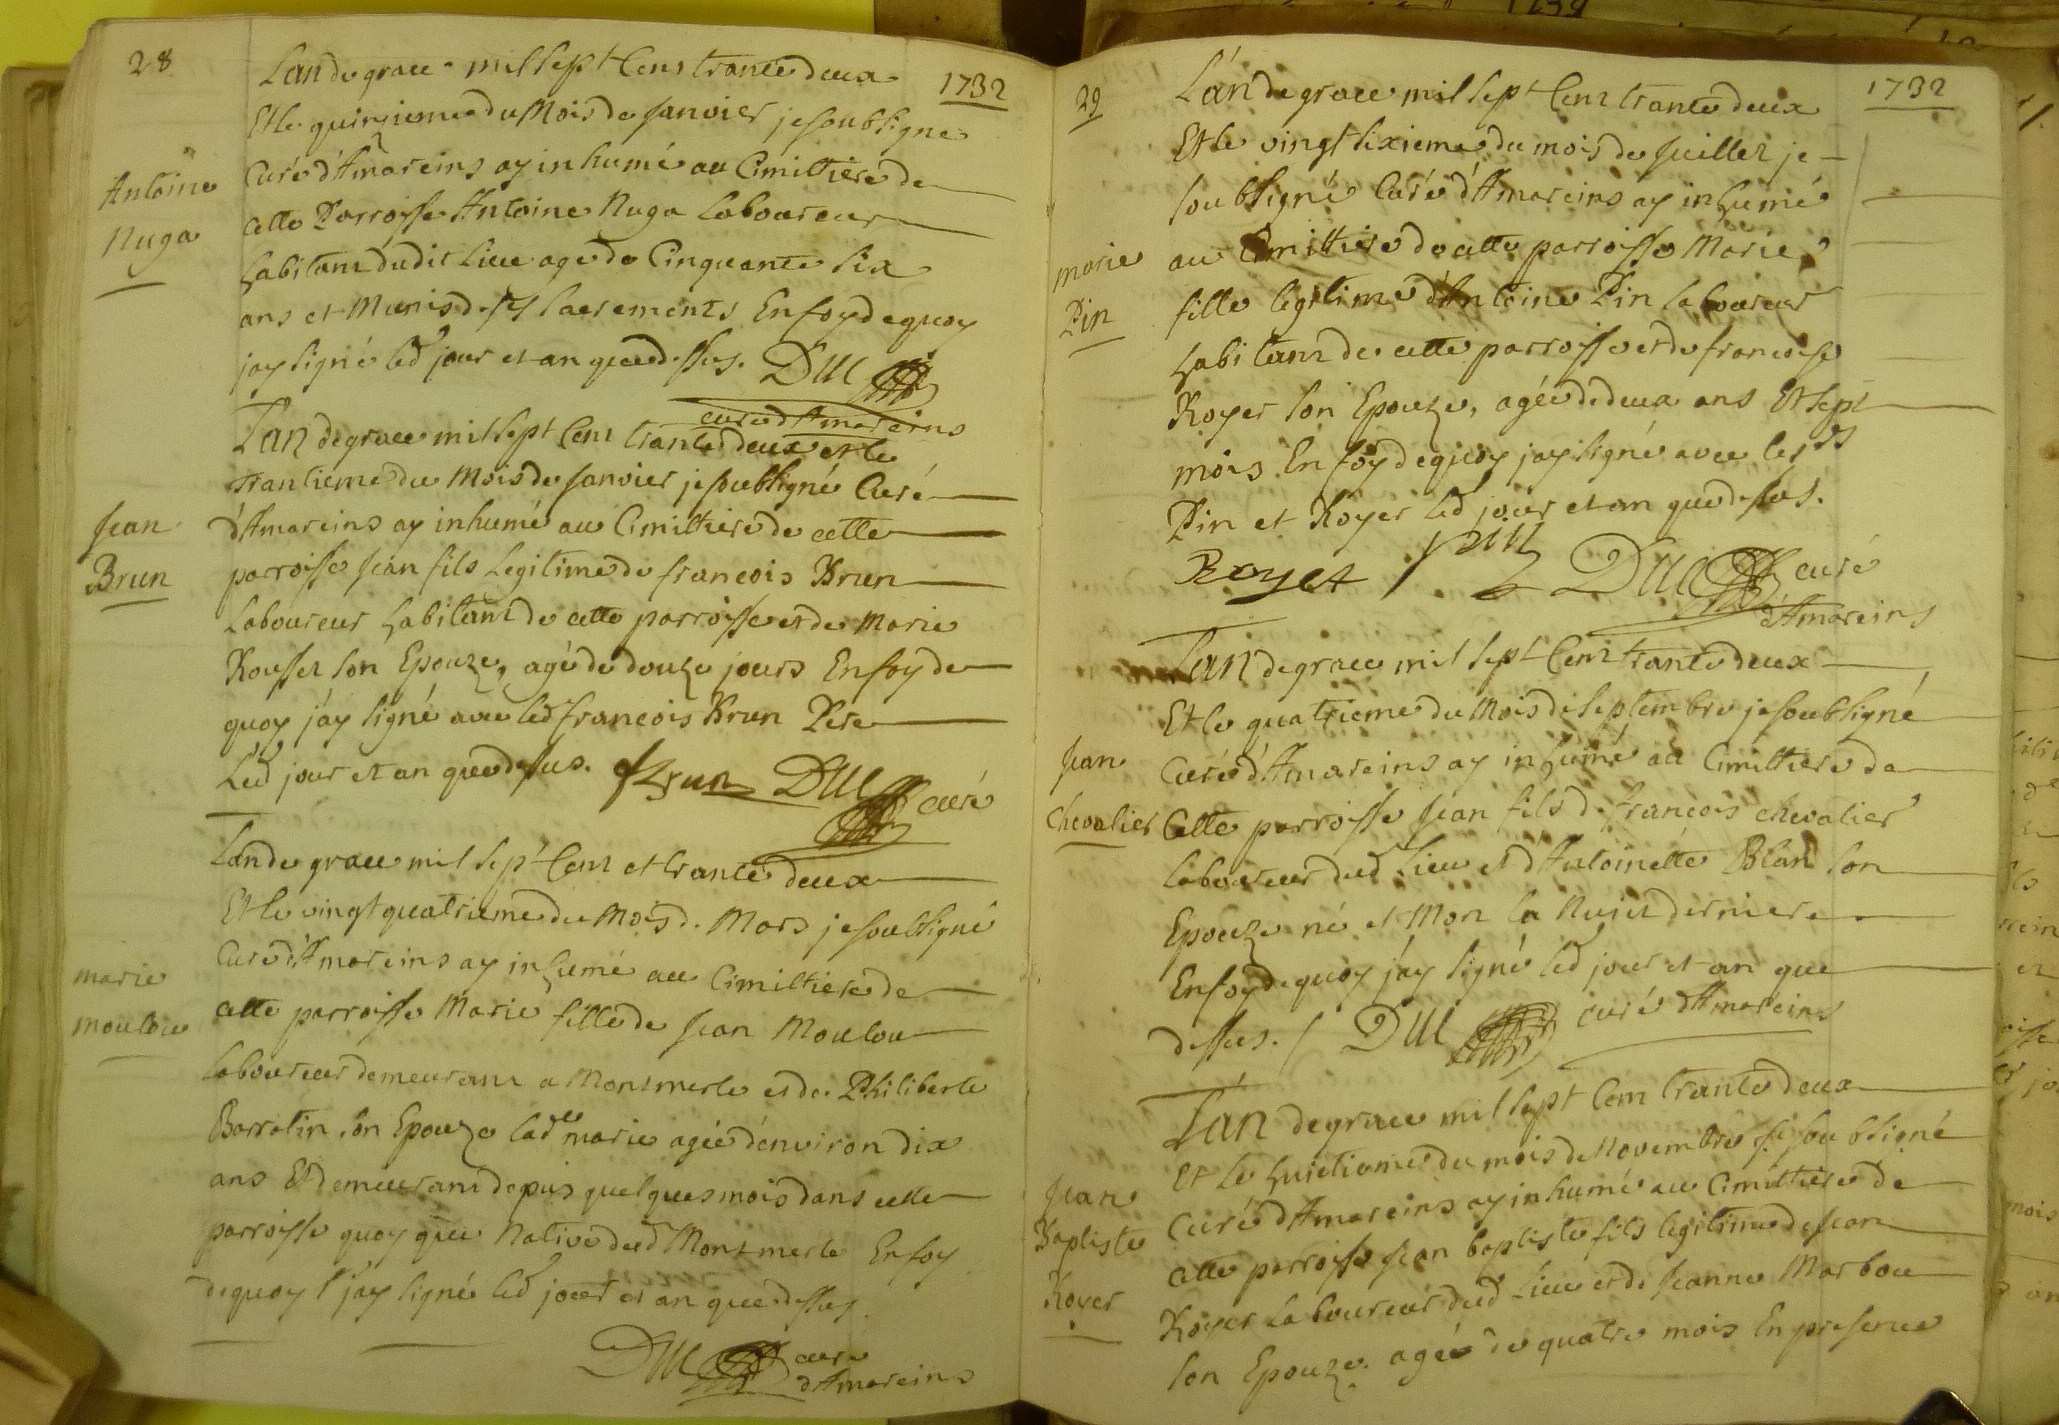 28
1732
L'an de grace mil sept Cens trante deux
Et le quinzieme du Mois de Janvier je soubsigne
Curé d'Amareins ay inhumé au Cimittiere de
cette Parroisse Antoine Nuga Laboureur
habitant dudit Lieu agé de Cinquante six
ans et Munis des sacrements En foy de quoy
jay signé led jour et an que dessus. DUC
curé d'Amareins
Antoine
Nuga
L'an de grace mil sept Cent trante deux et le
trantieme du Mois de Janvier je soubsigné Curé
d'Amareins ay inhumé au Cimittiere de cette
parroisse Jean fils Legitime de francois Brun
Laboureur habitant de cette parroisse et de Marie
Rousset son Epouze, agé de douze jours En foy de
quoy j'ay signé avec led francois Brun Pere
Led jour et an que dessus. f Brun DUC
curé
Jean
Brun
L'an de grace mil sept Cent et trante deux
Et le vingt quatrieme du Mois de Mars je soubsigné
Curé d'Amareins ay inhumé au Cimittiere de
cette parroisse Marie fille de Jean Moulou
Laboureur demeurant a Montmerle et de Philiberte
Barratin son Epouze lade marie agée d'environ dix
ans Et demeurant depuis quelques mois dans cette
parroisse quoy que Native dud Montmerle En foy
de quoy j'ay signé led jour et an que dessus.
DUC curé
d'Amareins
marie
moulou
29
1732
L'an de grace mil sept Cent trante deux
Et le vingt sixieme du mois de Juillet je
soubsigné Curé d'Amareins ay inhumé
au Cimittiere de cette parroisse Marie
fille legitime d'Antoine Pin Laboureur
habitant de cette parroisse et de francoise
Royer son Epouze, agée de deux ans Et sept
mois. En foy de quoy jay signé avec lesds
Pin et Royer led jour et an que dessus.
Royet pin DUC curé
d'Amareins
marie
Pin
L'an de grace mil sept Cent trante deux
Et le quatrieme du Mois de septembre je soubsigné
Curé d'Amareins ay inhumé au Cimittiere de
Cette parroisse Jean fils de francois chevalier
Laboureur dud Lieu et d'Antoinette Blan son
Epouze né et Mort la Nuit derniere
En foy de quoy j'ay signé led jour et an que
dessus. / DUC curé d'Amareins
Jean
Chevalier
L'an de grace mil sept Cent trante deux
Et le huictieme du mois de Novembre je soubsigné
Curé d'Amareins ay inhumé au Cimittiere de
cette parroisse Jean baptiste fils legitime de Jean
Royer Laboureur dud Lieu et de Jeanne Marbou
son Epouze. agé de quatre mois En presence
Jean
Baptiste
Royer